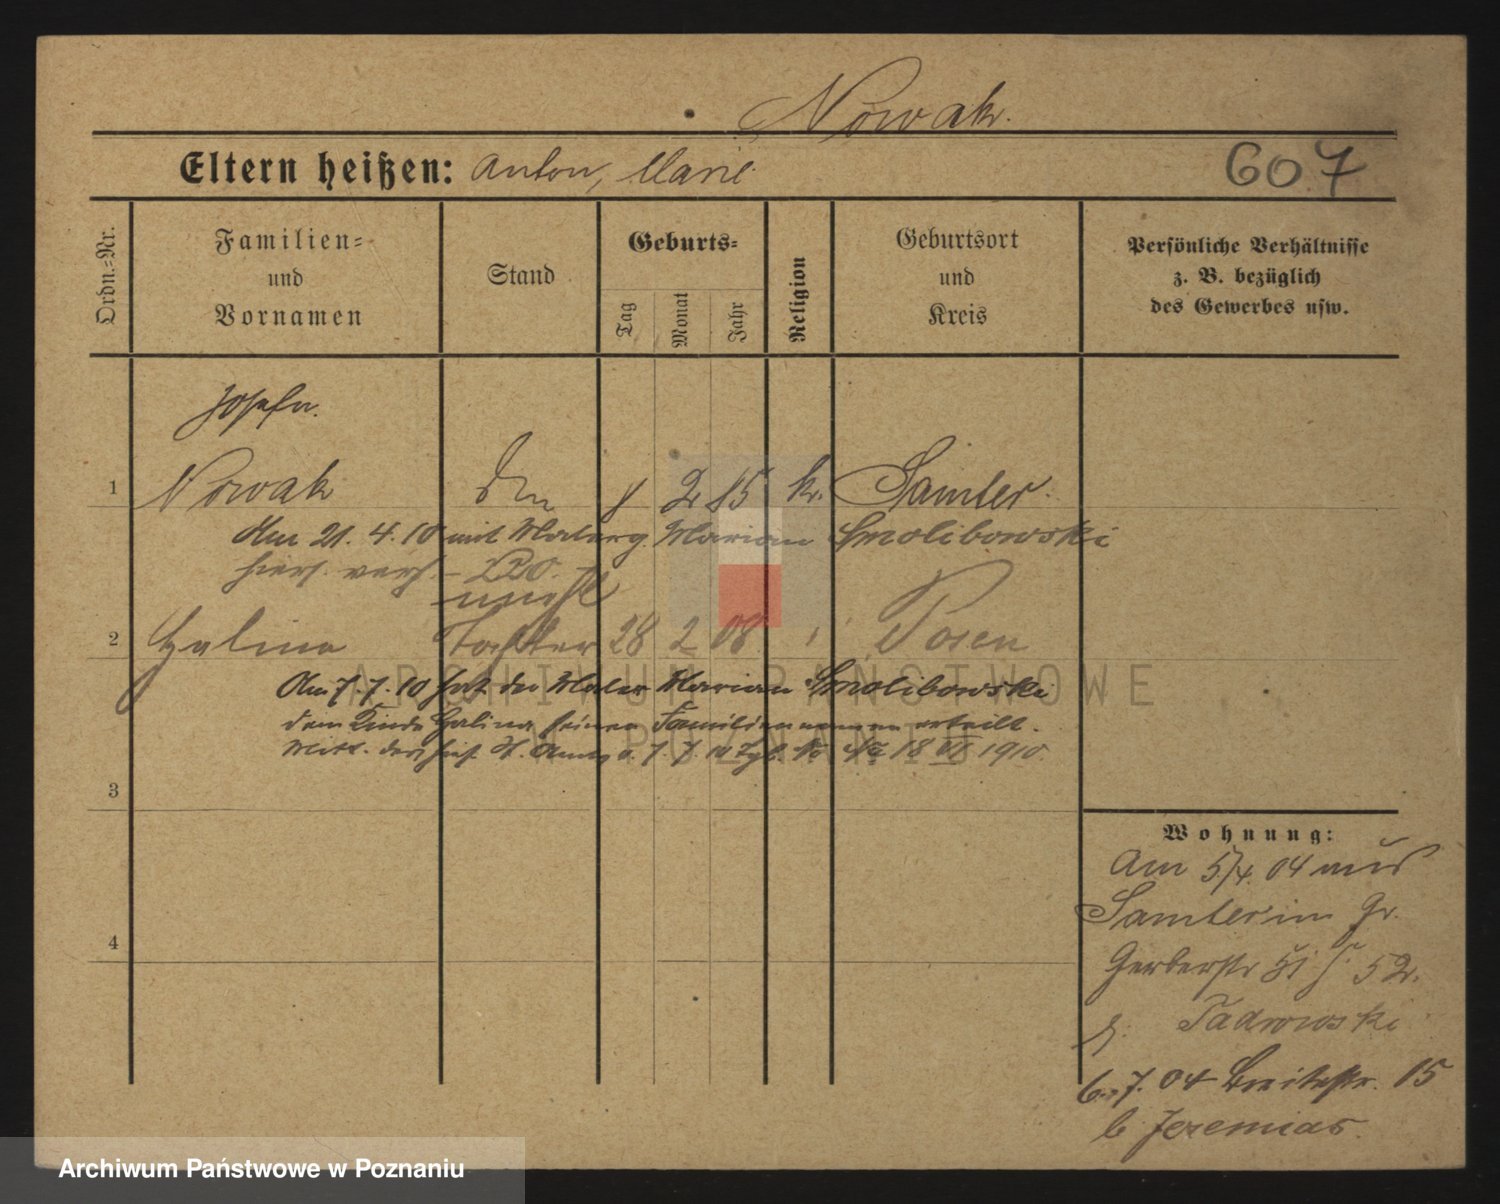 Nowak.
Eltern heißen: Anton, Marie
607
Ordn.=Nr.
Familien=
und
Vornamen
Stand
Geburts=
Tag
Monat
Jahr
Religion
Geburtsort
und
Kreis
Persönliche Verhältnisse
z. B. bezüglich
des Gewerbes usw.
Josefa.
1 Nowak 8 2 85 k. Samter.
Am 21. 4. 10 mit Malerg. Marian Smolibowski
hiers. verh.
unehl
2 Halina Tochter 28 2 08. Posen
Am 7. 7. 10 hat der Maler Marian Smolibowski
dem Kinde Halina seinen Familiennamen erteilt.
Mitt. des St. Amtes 7. 7. 10 No 18 VII 1910.
3
4
Wohnung:
Am 5/4. 04 aus
Samter in Gr.
Gerberstr 51 52.
Tadrowski
6. 7. 04 Breitestr. 15
b Jeremias.
ARCHIWUM PAŃSTWOWE
W POZNANIU
Archiwum Państwowe w Poznaniu